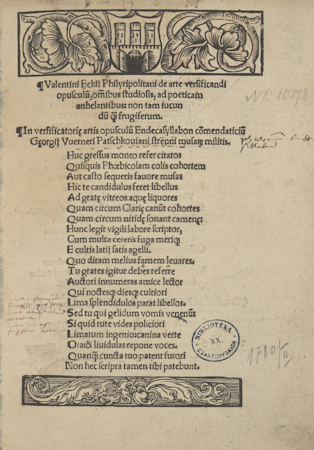 ¶Valentini Eckij Philyripolitani de arte versificandi
opusculū, omībus studiosis, ad poeticam
anhelantibus non tam iucun
dū q̄ frugiferum.
¶In versificatorię artis opusculū Endecasyllabon cōmendaticiū
Georgij Vuerneri Patschkouiani strenui musaꝝ militis.
Huc gressus moneo refer citatos
Quisquis Phœbicolam colis cohortem
Aut casto sequeris fauore musas
Hic te candidulus feret libellus
Ad gratę vitreos aquę liquores
Quam circum Clarię canūt cohortes
Quam circum nitidę sonant camenę:
Hunc legit vigili labore scriptor,
Cum multa cereris fuga meriq;
E cultis latij satis agelli.
Quo diram melius famem leuares.
Tu grates igitur debes referre
Auctori innumeras amice lector
Qui noctesq; diesq; cultiori
Lima splendidulos parat libellos.
Sed tu qui gelidum vomis venenū
Si quid tute vides policiori
Limatum ingenio: canina verte
Oraq; liuidulus repone voces.
Quanq̄ cuncta tuo patent furori
Non hec scripta tamen tibi patebunt.
BIBLIOTEKA
XX.
CZARTORYSKICH
1780/II